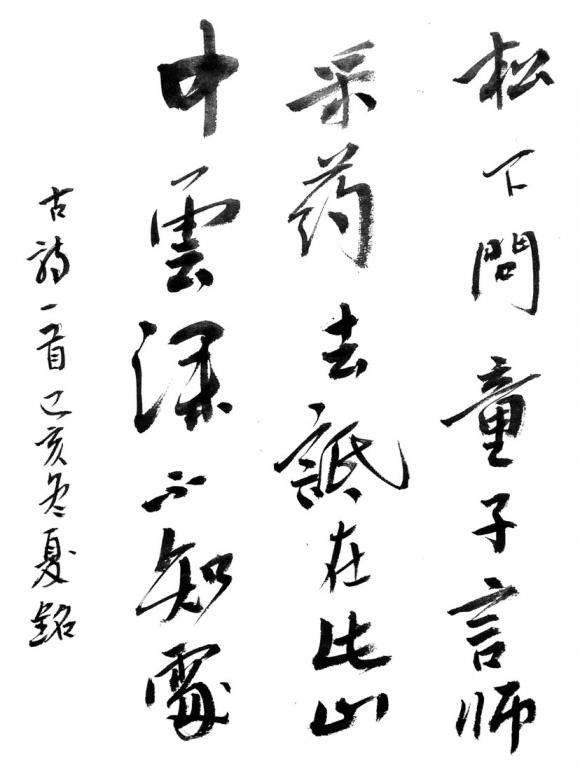 松下問童子言师
采药去誜在此山
中雲深不知處
古诗一首己亥冬夏銘